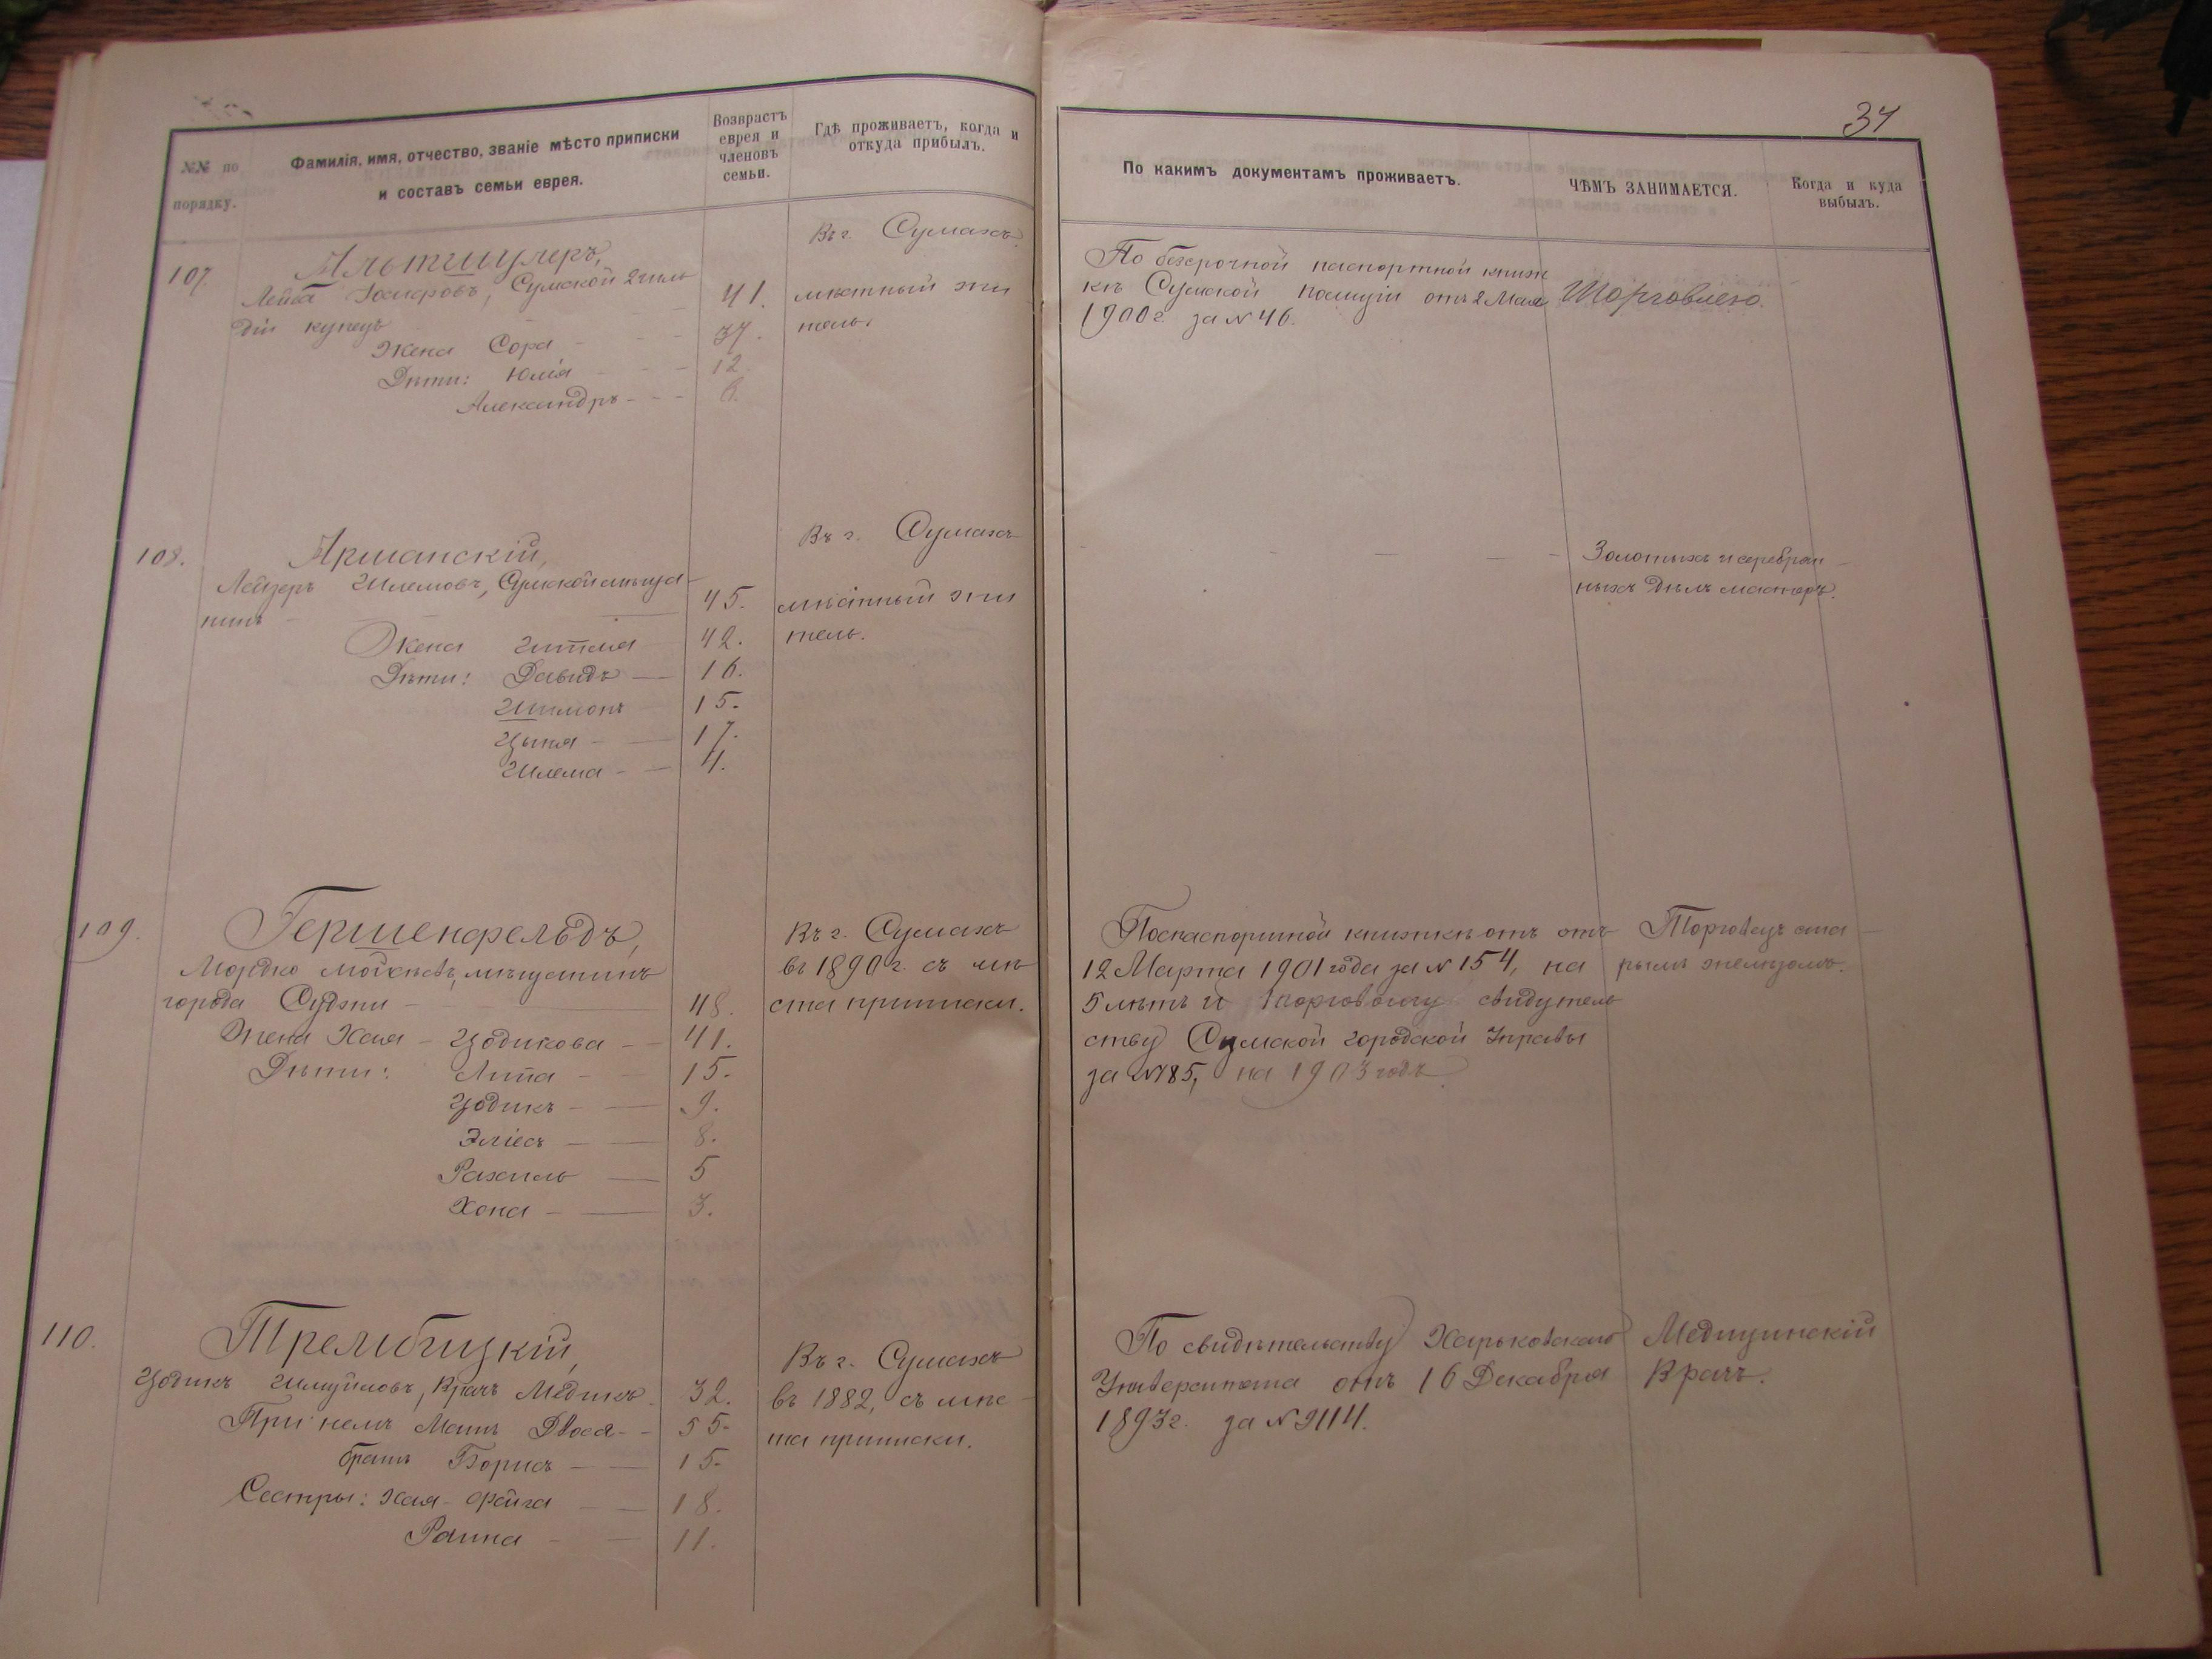 34
№№ по порядку.
Фамилія, имя, отчество, званіе мѣсто приписки
и составъ семьи еврея.
Возврастъ
еврея и
членовъ
семьи.
Гдѣ проживаетъ, когда и
откуда прибылъ.
По какимъ документамъ проживаетъ.
ЧѢМЪ ЗАНИМАЕТСЯ.
Когда и куда
выбылъ.
107.
Альтшулеръ,
Лейба, Сумской 2 гиль
діи купецъ 41.
Жена Сора 37.
Дѣти: Юлія 12.
Александръ 6.
Въ г. Сумахъ
мѣстный жи
тель.
По безсрочной паспортной книж
кѣ Сумской полиціи отъ 2 Мая
1900 г. за № 46.
Торговлею.
108.
Яршанскій,
Лейзеръ Шлемовъ, Сумской мѣща-
нинъ 45.
Жена Гитля 42.
Дѣти: Давидъ 16.
Шимонъ 15.
Цыпа 17.
Шлема 4.
Въ г. Сумахъ
мѣстный жи
тель.
Золотыхъ и серебрян-
ныхъ дѣлъ мастеръ.
109.
Гершенфельдъ,
Мордко, мѣщанинъ
города Суджи 48.
Жена Хая - Цодикова 41.
Дѣти: Липа 15.
Цодикъ 9.
Эліасъ 8.
Рахиль 5
Хона 3.
Въ г. Сумахъ
въ 1890 г. съ мѣ
ста приписки.
По паспортной книжкѣ отъ отъ
12 Марта 1901 года за № 154, на
5 лѣтъ и торговому свидѣтель
ству Сумской городской Управы
за № 785, на 1903 годъ
Торговецъ ста-
рымъ желѣзомъ.
110.
Трембицкій,
Цодикъ Шмуйловъ, Врачъ Медикъ 32.
При немъ Мать Двося 55.
братъ Борисъ 15.
Сестры: Хая - Фейга 18.
Раина 11.
Въ г. Сумахъ
въ 1882, съ мѣс-
та приписки.
По свидѣтельству Харьковскаго
Университета отъ 16 Декабря
1893 г. за № 2114.
Медицинскій
Врачъ.